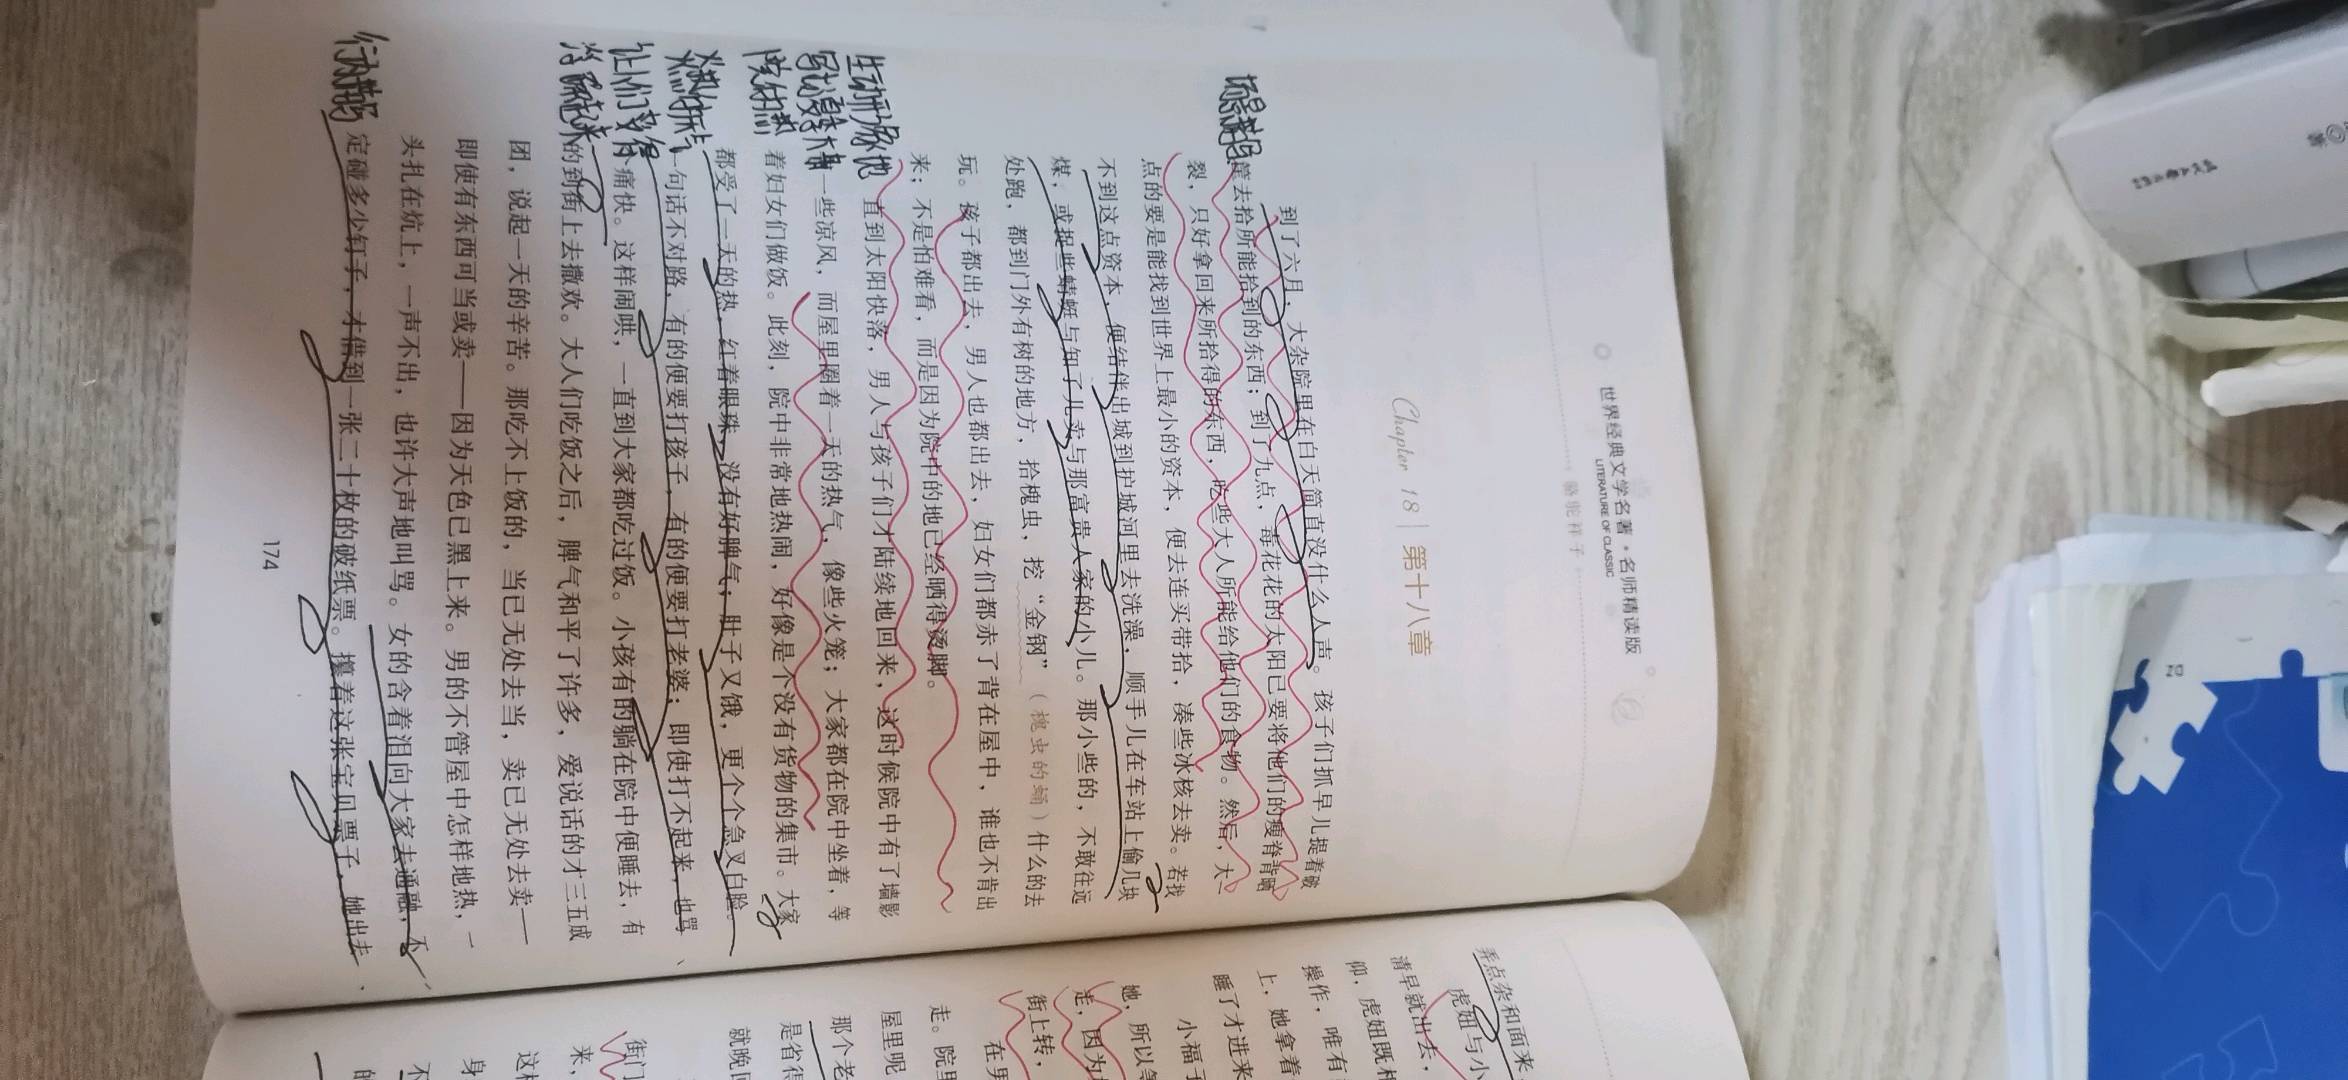 世界经典文学名著·名师精读版
LITERATURE OF CLASSIC
骆驼祥子
Chapter 18 | 第十八章
到了六月，大杂院里在白天简直没什么人声。孩子们抓早儿提着破
筐去拾所能拾到的东西；到了九点，毒花花的太阳已要将他们的瘦脊背晒
裂，只好拿回来所拾得的东西，吃些大人所能给他们的食物。然后，大一
点的要是能找到世界上最小的资本，便去连买带拾，凑些冰核去卖。若找
不到这点资本，便结伴出城到护城河里去洗澡，顺手儿在车站上偷几块
煤，或捉些蜻蜓与知了儿卖与那富贵人家的小儿。那小些的，不敢往远
处跑，都到门外有树的地方，拾槐虫，挖“金钢”（槐虫的蛹）什么的去
玩。孩子都出去，男人也都出去，妇女们都赤了背在屋中，谁也不肯出
来；不是怕难看，而是因为院中的地已经晒得烫脚。
直到太阳快落，男人与孩子们才陆续地回来，这时候院中有了墙影
一些凉风，而屋里圈着一天的热气，像些火笼；大家都在院中坐着，等
着妇女们做饭。此刻，院中非常地热闹，好像是个没有货物的集市。大家
都受了一天的热，红着眼珠，没有好脾气；肚子又饿，更个个急叉白脸。
一句话不对路，有的便要打孩子，有的便要打老婆；即使打不起来，也骂
个痛快。这样闹哄，一直到大家都吃过饭。小孩有的躺在院中便睡去，有
的到街上去撒欢。大人们吃饭之后，脾气和平了许多，爱说话的才三五成
团，说起一天的辛苦。那吃不上饭的，当已无处去当，卖已无处去卖——
即使有东西可当或卖——因为天色已黑上来。男的不管屋中怎样地热，一
头扎在炕上，一声不出，也许大声地叫骂。女的含着泪向大家去通融，不
定碰多少钉子，才借到一张二十枚的破纸票。攥着这张宝贝票子，她出去
174
场景描写
生动形象地
写出
院
行为描写
弄点杂和面来
虎妞与小
清早就出去，
仰，虎妞既
操作，唯有
上，她拿着
睡了才进来
小福子
她，所以等
走，因为
街上转，
在男
走。院里
屋里呢
那个老
是省得
就晚
街门
来，
这样
身
不
的